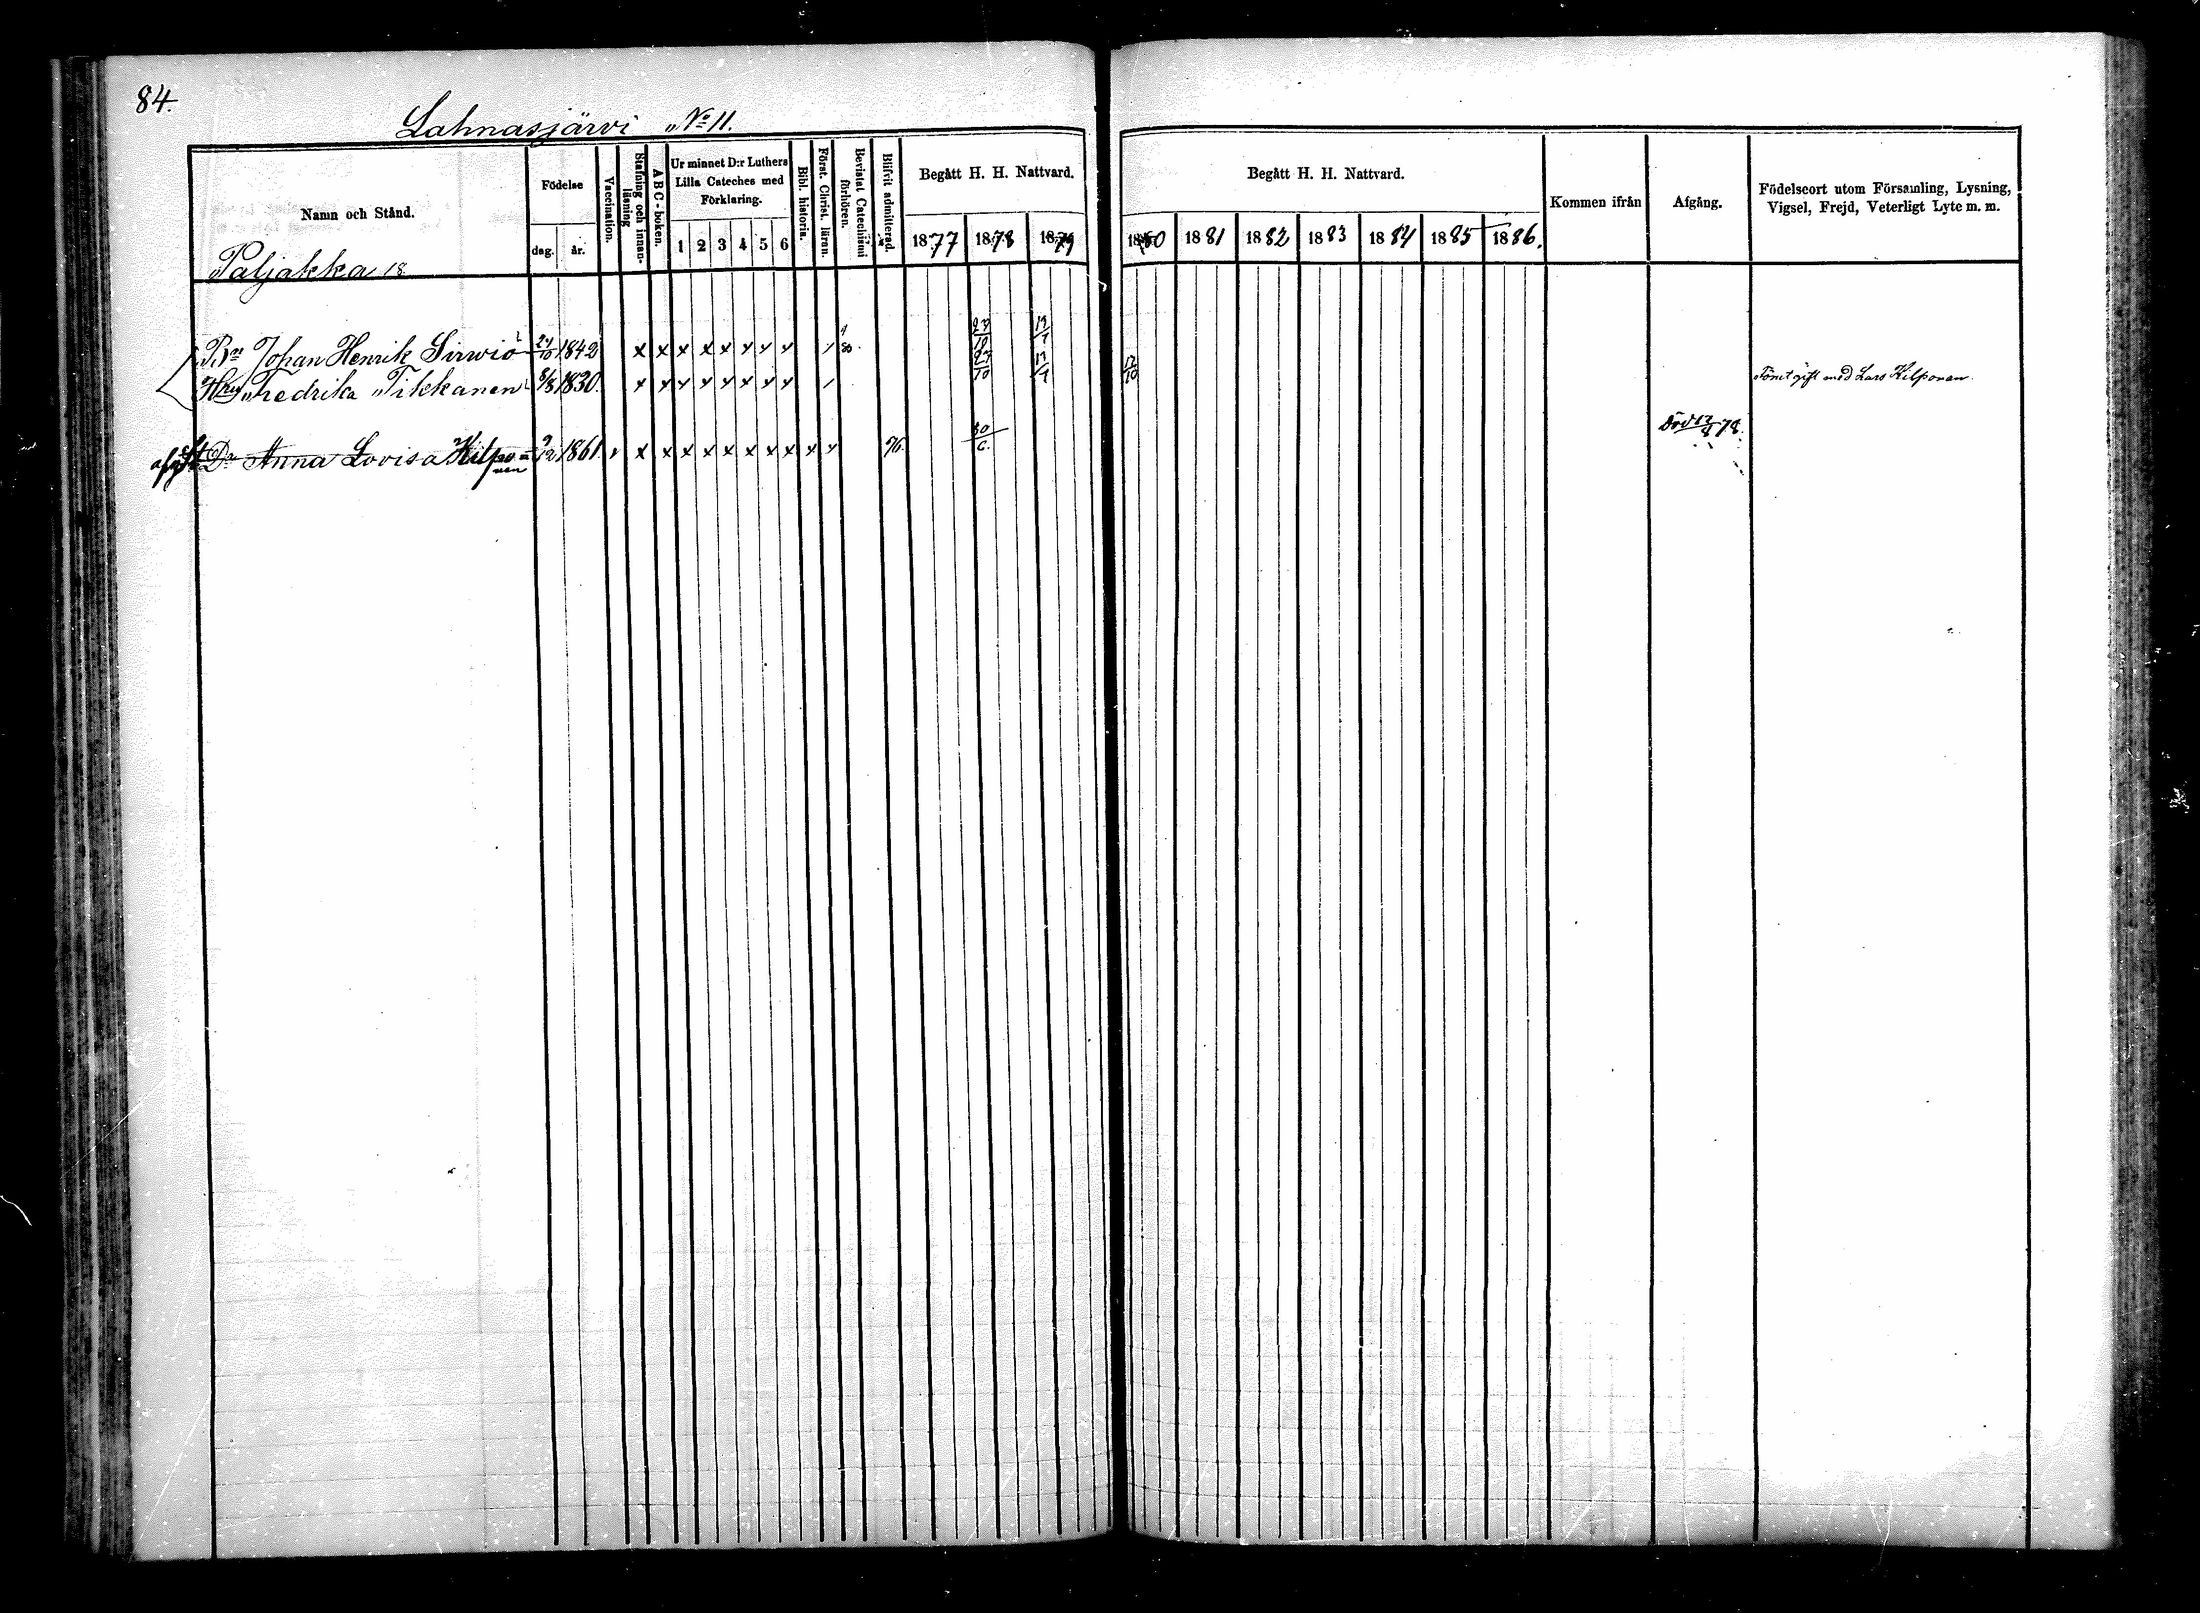 84.
Lahnasjärvi No 11.
Namn och Stånd.
Födelse
dag. år.
Vaccination.
Stafning och innan-
läsning
A B C-boken.
Ur minnet D:r Luthers
Lilla Cateches med
Förklaring.
1 2 3 4 5 6
Bibl. historia.
Först. Christ. läran.
Bevistat Catechismi
förhören.
Blifvit admitterad.
Begått H. H. Nattvard.
1877 1878 1879
Begått H. H. Nattvard.
1880 1881 1882 1883 1884 1885 1886.
Kommen ifrån
Afgång.
Födelseort utom Församling, Lysning,
Vigsel, Frejd, Veterligt Lyte m. m.
Paljakka 18
Bn Johan Henrik Sirwiö 27/10 1842 x x x x x x x x / 80. 27/10
Hru Fredrika Tikkanen 8/8 1830. x x x x x x x x / 27/10 12/10 Förut gift med Lars Kilponen.
Dr Anna Lovisa Kilpo=
nen 9/12 1861. x x x x x x x x x x 76. 30/6. Död 78.